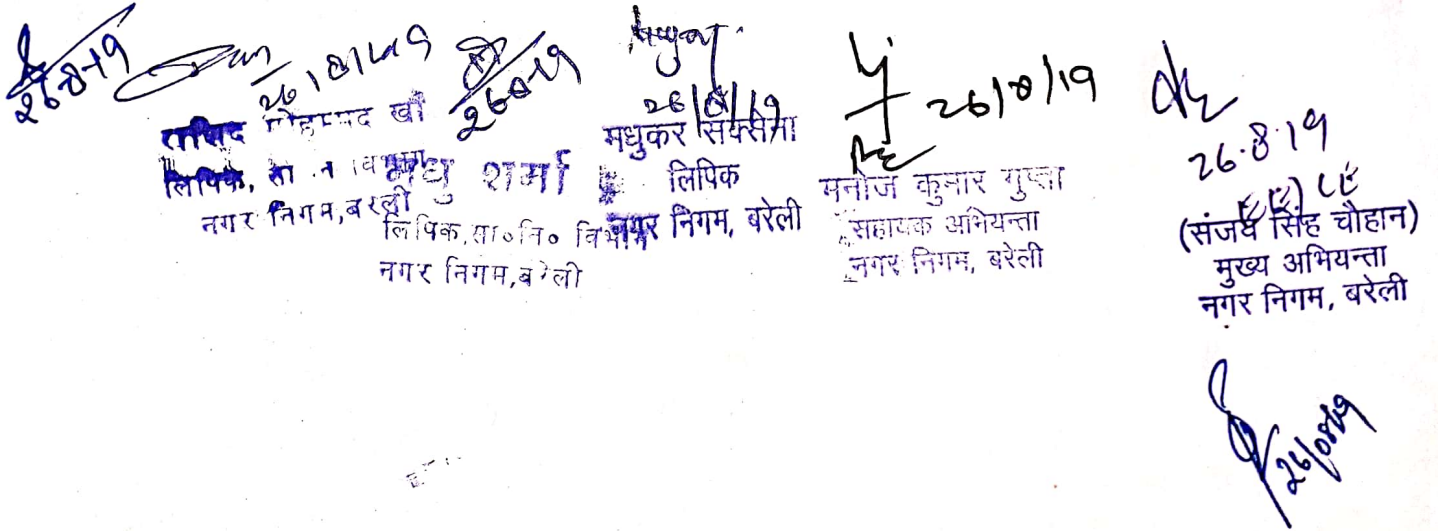 26-8-19
26/8/19
मोहम्मद खाँ
लिपिक, सा . नि . विभाग
नगर निगम, बरेली
26-8-19
मधु शर्मा
लिपिक, सा०नि० विभाग
नगर निगम, बरेली
26/8/19
मधुकर सक्सेना
लिपिक
नगर निगम, बरेली
26/8/19
AE
मनोज कुमार गुप्ता
सहायक अभियन्ता
नगर निगम, बरेली
26.8.19
(संजय सिंह चौहान)
मुख्य अभियन्ता
नगर निगम, बरेली
26/08/19